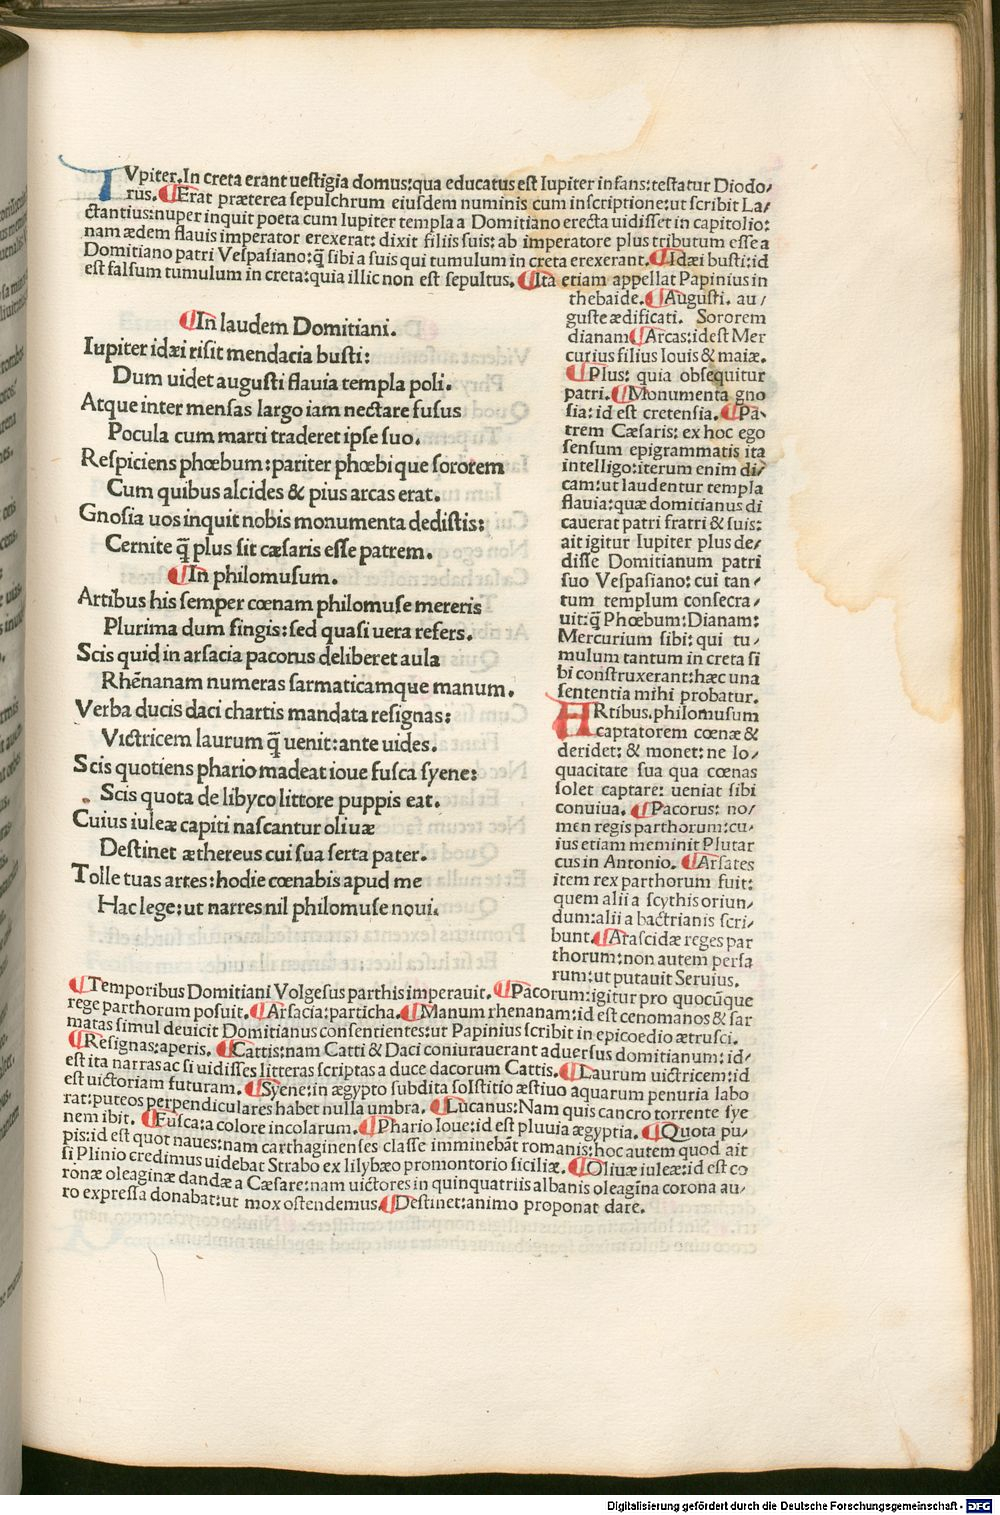 IVpiter. In creta erant uestigia domus: qua educatus est Iupiter infans: testatur Diodo/
rus. ¶ Erat præterea sepulchrum eiusdem numinis cum inscriptione: ut scribit La/
ctantius: nuper inquit poeta cum Iupiter templa a Domitiano erecta uidisset in capitolio:
nam ædem flauis imperator erexerat: dixit filiis suis: ab imperatore plus tributum esse a
Domitiano patri Vespasiano: q̄ sibi a suis qui tumulum in creta erexerant. ¶ Idæi busti: id
est falsum tumulum in creta: quia illic non est sepultus. ¶ Ita etiam appellat Papinius in
thebaide. ¶ Augusti. au/
guste ædificati. Sororem
dianam ¶ Arcas: id est Mer
curius filius Iouis & maiæ.
¶ Plus: quia obsequitur
patri. ¶ Monumenta gno
sia: id est cretensia. ¶ Pa/
trem Cæsaris: ex hoc ego
sensum epigrammatis ita
intelligo: iterum enim di/
cam: ut laudentur templa
flauia: quæ domitianus di
cauerat patri fratri & suis:
ait igitur Iupiter plus de/
disse Domitianum patri
suo Vespasiano: cui tan/
tum templum consecra/
uit: q̄ Phœbum: Dianam:
Mercurium sibi: qui tu/
mulum tantum in creta si
bi construxerant: hæc una
sententia mihi probatur.
ARtibus. philomusum
captatorem cœnæ &
deridet: & monet: ne lo/
quacitate sua qua cœnas
solet captare: ueniat sibi
conuiua. ¶ Pacorus: no/
men regis parthorum: cu/
ius etiam meminit Plutar
cus in Antonio. ¶ Arsates
item rex parthorum fuit:
quem alii a scythis oriun/
dum: alii a bactrianis scri/
bunt. ¶ Arascidæ reges par
thorum: non autem persa
rum: ut putauit Seruius.
¶ In laudem Domitiani.
Iupiter idæi risit mendacia busti:
Dum uidet augusti flauia templa poli.
Atque inter mensas largo iam nectare fusus
Pocula cum marti traderet ipse suo.
Respiciens phœbum: pariter phœbique sororem
Cum quibus alcides & pius arcas erat.
Gnosia uos inquit nobis monumenta dedistis:
Cernite q̄ plus sit cæsaris esse patrem.
¶ In philomusum.
Artibus his semper cœnam philomuse mereris
Plurima dum fingis: sed quasi uera refers.
Scis quid in arsacia pacorus deliberet aula
Rhēnanam numeras sarmaticamque manum.
Verba ducis daci chartis mandata resignas:
Victricem laurum q̄ uenit: ante uides.
Scis quotiens phario madeat ioue fusca syene:
Scis quota de libyco littore puppis eat.
Cuius iuleæ capiti nascantur oliuæ
Destinet æthereus cui sua serta pater.
Tolle tuas artes: hodie cœnabis apud me
Hac lege: ut narres nil philomuse noui.
¶ Temporibus Domitiani Volgesus parthis imperauit. ¶ Pacorum: igitur pro quocūque
rege parthorum posuit. ¶ Arsacia: particha. ¶ Manum rhenanam: id est cenomanos & sar
matas simul deuicit Domitianus consentientes: ut Papinius scribit in epicoedio ætrusci.
¶ Resignas: aperis. ¶ Cattis: nam Catti & Daci coniurauerant aduersus domitianum: id/
est ita narras ac si uidisses litteras scriptas a duce dacorum Cattis. ¶ Laurum uictricem: id
est uictoriam futuram. ¶ Syene: in ægypto subdita solstitio æstiuo aquarum penuria labo
rat: puteos perpendiculares habet nulla umbra. ¶ Lucanus: Nam quis cancro torrente sye
nem ibit. ¶ Fusca: a colore incolarum. ¶ Phario Ioue: id est pluuia ægyptia. ¶ Quota pu/
pis: id est quot naues: nam carthaginenses classe imminebāt romanis: hoc autem quod ait
si Plinio credimus uidebat Strabo ex lilybæo promontorio siciliæ. ¶ Oliuæ iuleæ: id est co
ronæ oleaginæ dandæ a Cæsare: nam uictores in quinquatriis albanis oleagina corona au/
ro expressa donabat: ut mox ostendemus. ¶ Destinet: animo proponat dare.
Digitalisierung gefördert durch die Deutsche Forschungsgemeinschaft - DFG